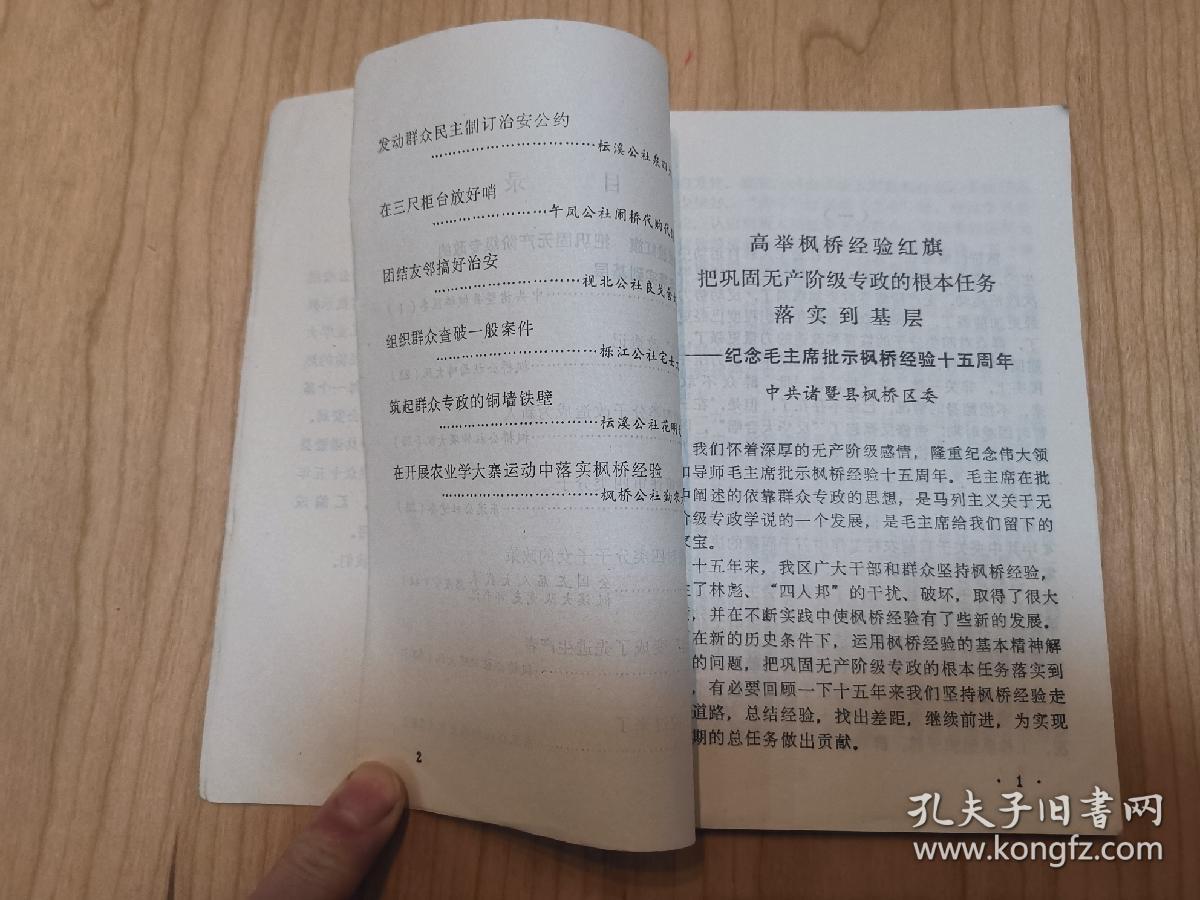 发动群众民主制订治安公约
……………………………枟溪公社
在三尺柜台放好哨
…………………午凤公社闹桥代购代
团结友邻搞好治安
………………………视北公社良戈
组织群众查破一般案件
…………………………栎江公社宅士
筑起群众专政的铜墙铁壁
…………………………枟溪公社花明
在开展农业学大寨运动中落实枫桥经验
…………………………枫桥公社
2
高举枫桥经验红旗
把巩固无产阶级专政的根本任务
落实到基层
——纪念毛主席批示枫桥经验十五周年
中共诸暨县枫桥区委
我们怀着深厚的无产阶级感情，隆重纪念伟大领
导师毛主席批示枫桥经验十五周年。毛主席在批
中阐述的依靠群众专政的思想，是马列主义关于无
级专政学说的一个发展，是毛主席给我们留下的
宝。
十五年来，我区广大干部和群众坚持枫桥经验，
了林彪、“四人邦”的干扰、破坏，取得了很大
，并在不断实践中使枫桥经验有了些新的发展。
在新的历史条件下，运用枫桥经验的基本精神解
的问题，把巩固无产阶级专政的根本任务落实到
，有必要回顾一下十五年来我们坚持枫桥经验走
道路，总结经验，找出差距，继续前进，为实现
期的总任务做出贡献。
·1·
孔夫子旧书网
www.kongfz.com